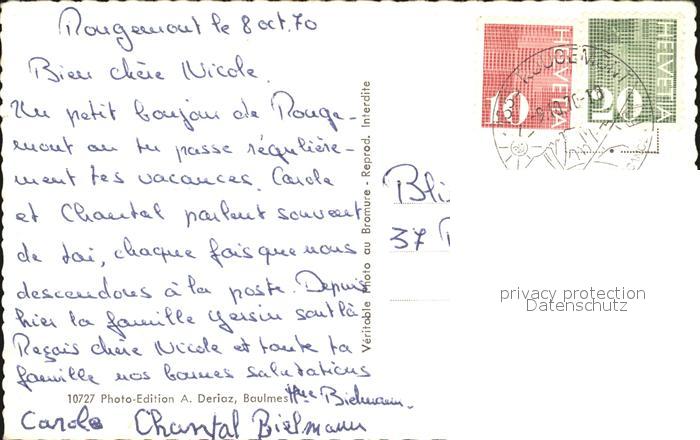 Rougemont le 8 oct. 70
Bien chère Nicole.
Un petit bonjour de Rouge-
mont ou tu passe régulière-
ment tes vacances. Carole
et Chantal parlent souvent
de toi, chaque fois que nous
descendons à la poste. Depuis
hier la famille Yersin sont là
Reçois chère Nicole et toute ta
famille nos bonnes salutations
10727 Photo-Edition A. Deriaz, Baulmes
Bielmann.
Carole Chantal Bielmann
Véritable Photo au Bromure - Reprod. Interdite
HELVETIA
10
HELVETIA
20
ROUGEMONT
37
privacy protection
Datenschutz